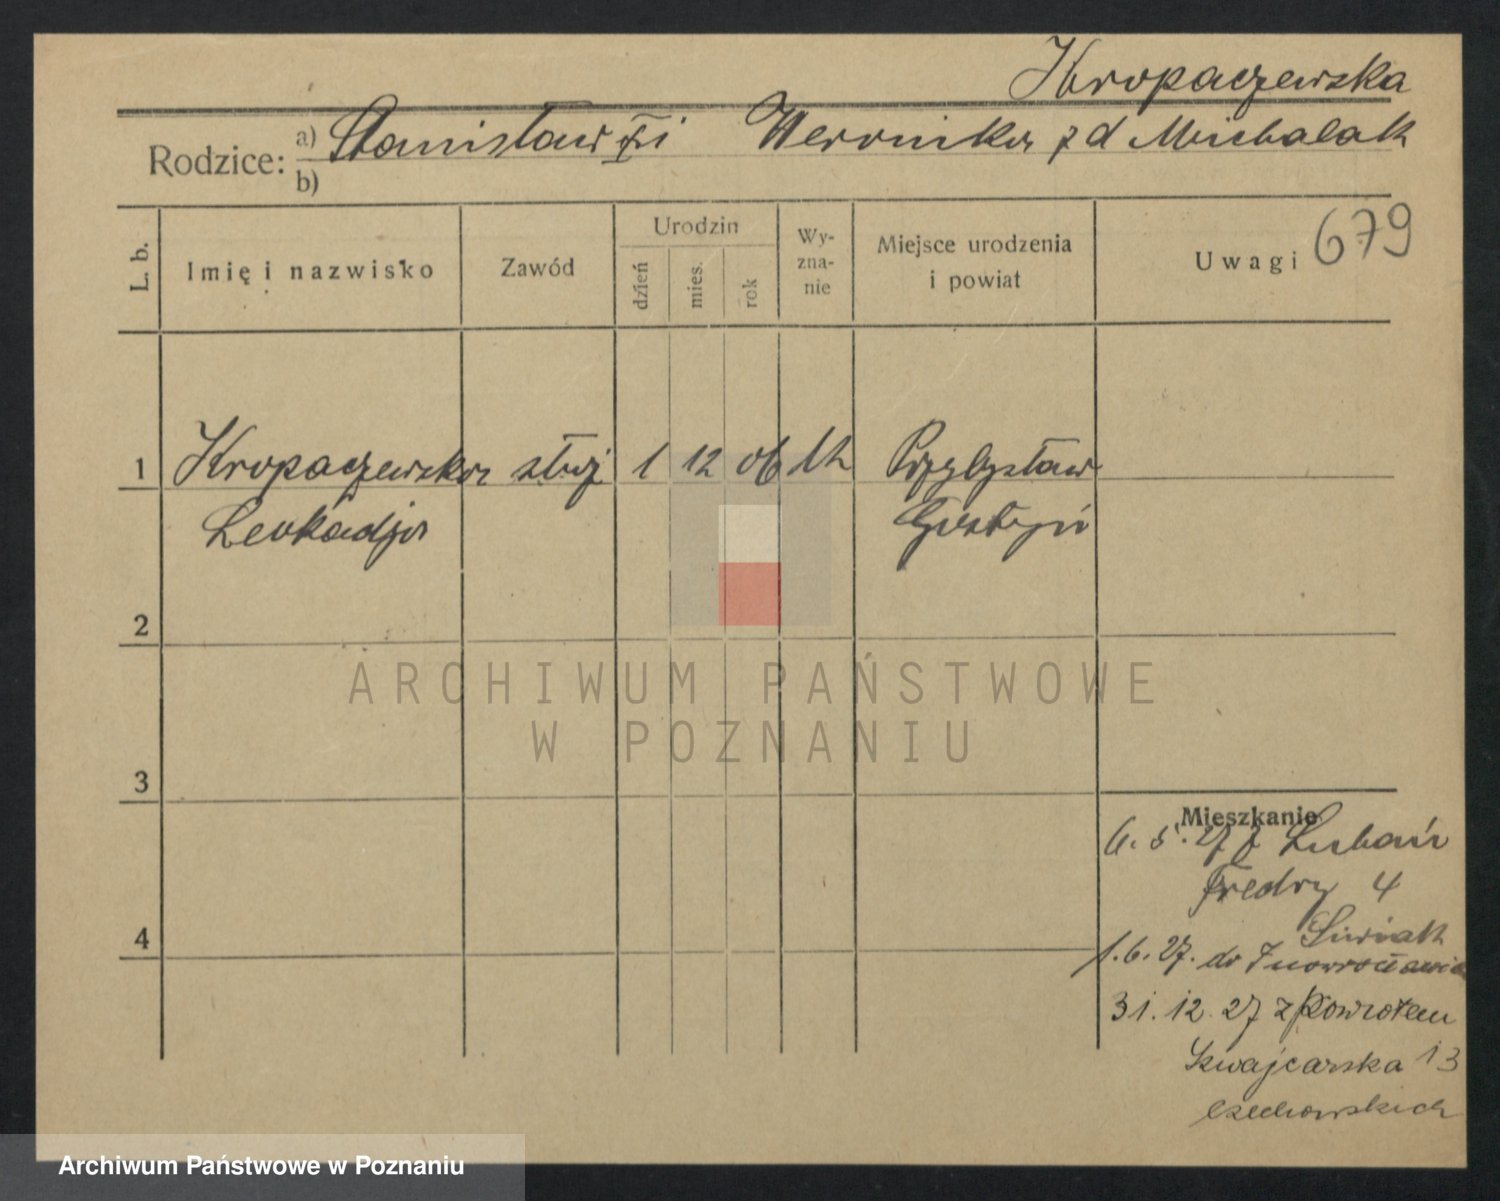 Kropaczewska
Rodzice: a) Stanisław i Weronika z d Michalak
b)
L. b.
Imię i nazwisko
Zawód
Urodzin
dzień
mies.
rok
Wy-
zna-
nie
Miejsce urodzenia
i powiat
Uwagi 679
1 Kropaczewska służ 1 12 06 Przybysław
Leokadja Gostyń
2
3
4
Mieszkanie
6. 5. 27 z Lubań
Fredry 4
Siwiak
1.6.27. do Inowrocławia
31. 12. 27 z powrotem
Szwajcarska 13
Czechowskich
ARCHIWUM PAŃSTWOWE
W POZNANIU
Archiwum Państwowe w Poznaniu